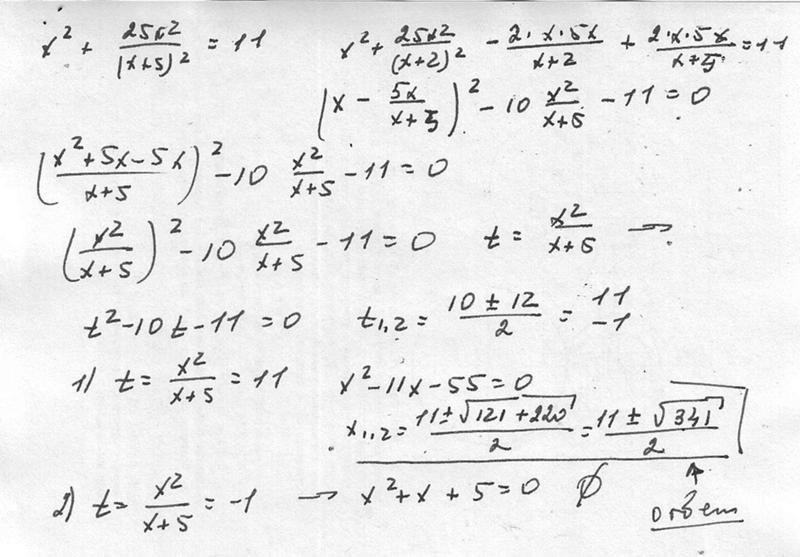 x² + 25x²/(x+5)² = 11
x² + 25x²/(x+2)² - 2·x·5x/(x+2) + 2·x·5x/(x+5) = 11
(x - 5x/(x+5))² - 10 x²/(x+5) - 11 = 0
((x²+5x-5x)/(x+5))² - 10 x²/(x+5) - 11 = 0
(x²/(x+5))² - 10 x²/(x+5) - 11 = 0 t = x²/(x+5) →
t² - 10t - 11 = 0 t₁,₂ = (10 ± 12)/2 = 11 -1
1) t = x²/(x+5) = 11 x² - 11x - 55 = 0
x₁,₂ = (11 ± √(121 + 220))/2 = (11 ± √341)/2
2) t = x²/(x+5) = -1 → x² + x + 5 = 0 ∅
↑
ответ